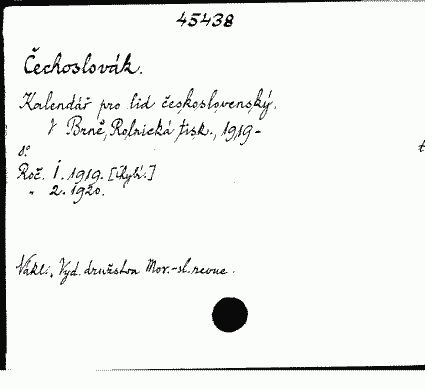 45438
Čechoslovák.
Kalendář pro lid československý.
V Brně, Rolnická tisk., 1919-
8°
Roč. 1. 1919. [chybí.]
" 2. 1920.
Nákl. Vyd. družstva Mor.-sl. revue.